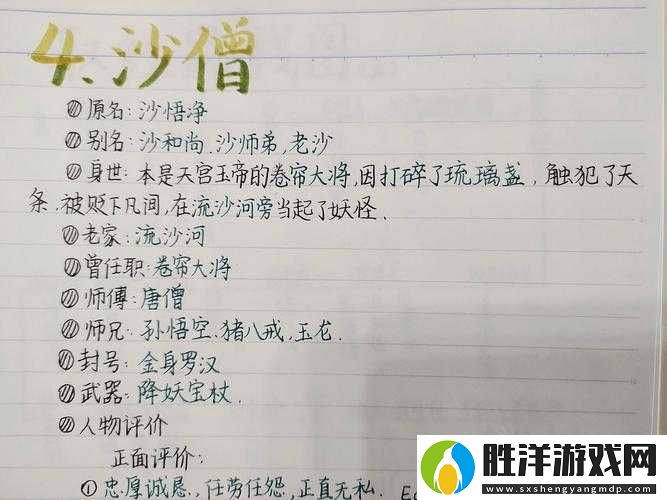 4、沙僧
原名：沙悟净
别名：沙和尚、沙师弟、老沙
身世：本是天宫玉帝的卷帘大将，因打碎了琉璃盏，触犯了天
条，被贬下凡间，在流沙河旁当起了妖怪、
老家：流沙河
曾任职：卷帘大将
师傅：唐僧
师兄：孙悟空、猪八戒，玉龙.
封号：金身罗汉
武器：降妖宝杖.
人物评价
正面评价：
①忠厚诚恳、任劳任怨，正直无私.
胜洋游戏网
www.sxshengyangmdp.com